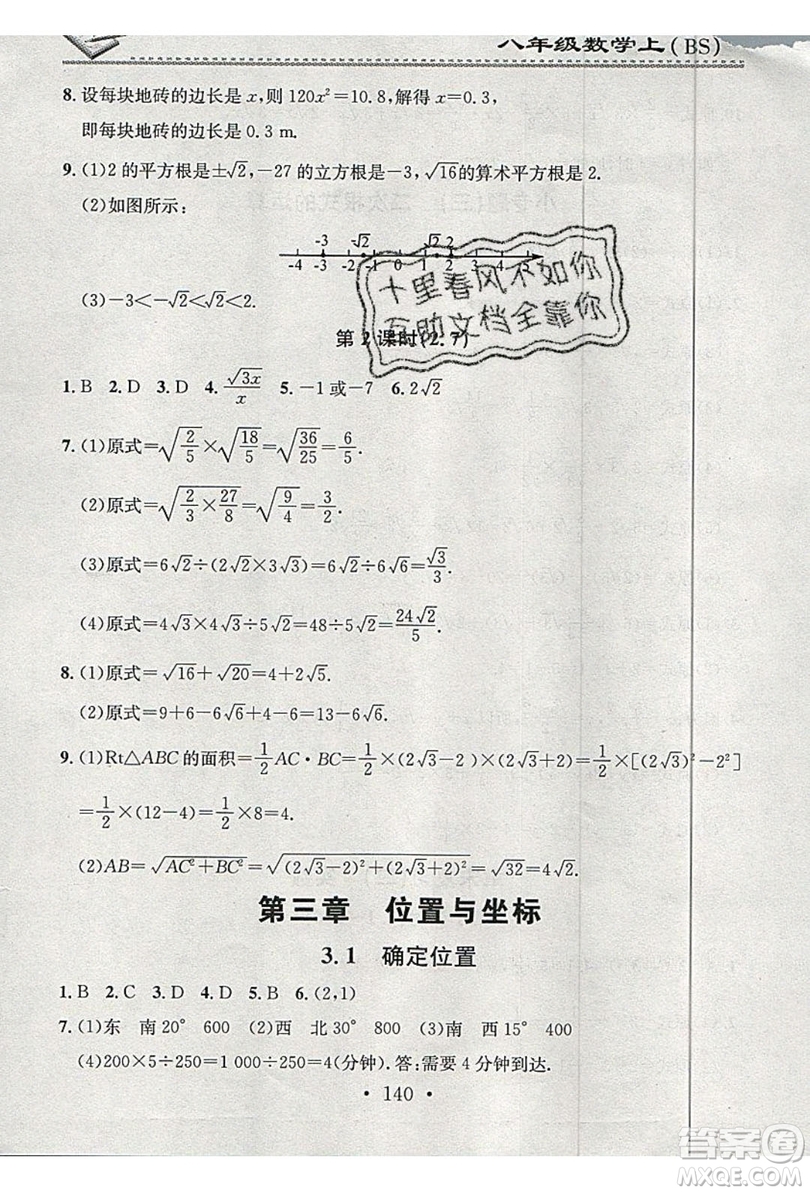 八年级数学上(BS)
8. 设每块地砖的边长是 x,则 120x²=10.8,解得 x=0.3,
即每块地砖的边长是 0.3 m.
9. (1)2 的平方根是±√2,−27 的立方根是−3,√16的算术平方根是 2.
(2)如图所示:
-3 -√2 √2 2
-4 -3 -2 -1 0 1 2
(3)−3<−√2<√2<2.
十里春风不如你
互助文档全靠你
第 2 课时(2.7)
1. B 2. D 3. D 4. √(3x)/x 5. −1 或−7 6. 2√2
7. (1)原式=√(2/5)×√(18/5)=√(36/25)=6/5.
(2)原式=√(2/3×27/8)=√(9/4)=3/2.
(3)原式=6√2÷(2√2×3√3)=6√2÷6√6=√3/3.
(4)原式=4√3×4√3÷5√2=48÷5√2=24√2/5.
8. (1)原式=√16+√20=4+2√5.
(2)原式=9+6−6√6+4−6=13−6√6.
9. (1)Rt△ABC 的面积=1/2 AC·BC=1/2×(2√3−2)×(2√3+2)=1/2×[(2√3)²−2²]
=1/2×(12−4)=1/2×8=4.
(2)AB=√(AC²+BC²)=√((2√3−2)²+(2√3+2)²)=√32=4√2.
第三章 位置与坐标
3.1 确定位置
1. B 2. C 3. D 4. D 5. B 6. (2,1)
7. (1)东 南20° 600 (2)西 北30° 800 (3)南 西15° 400
(4)200×5÷250=1 000÷250=4(分钟).答:需要 4 分钟到达.
· 140 ·
答案圈
MXQE.COM